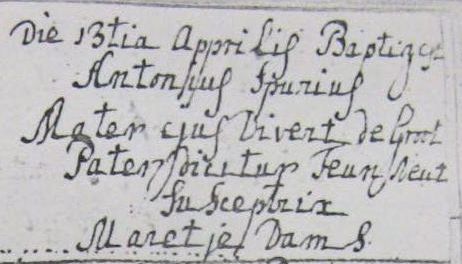 Die 13tia Apprilis Baptizat
Antonijus Spurius
Mater ejus Vivert de Groot
Pater dicitur Teun
Susceptrix
Maretje Dams